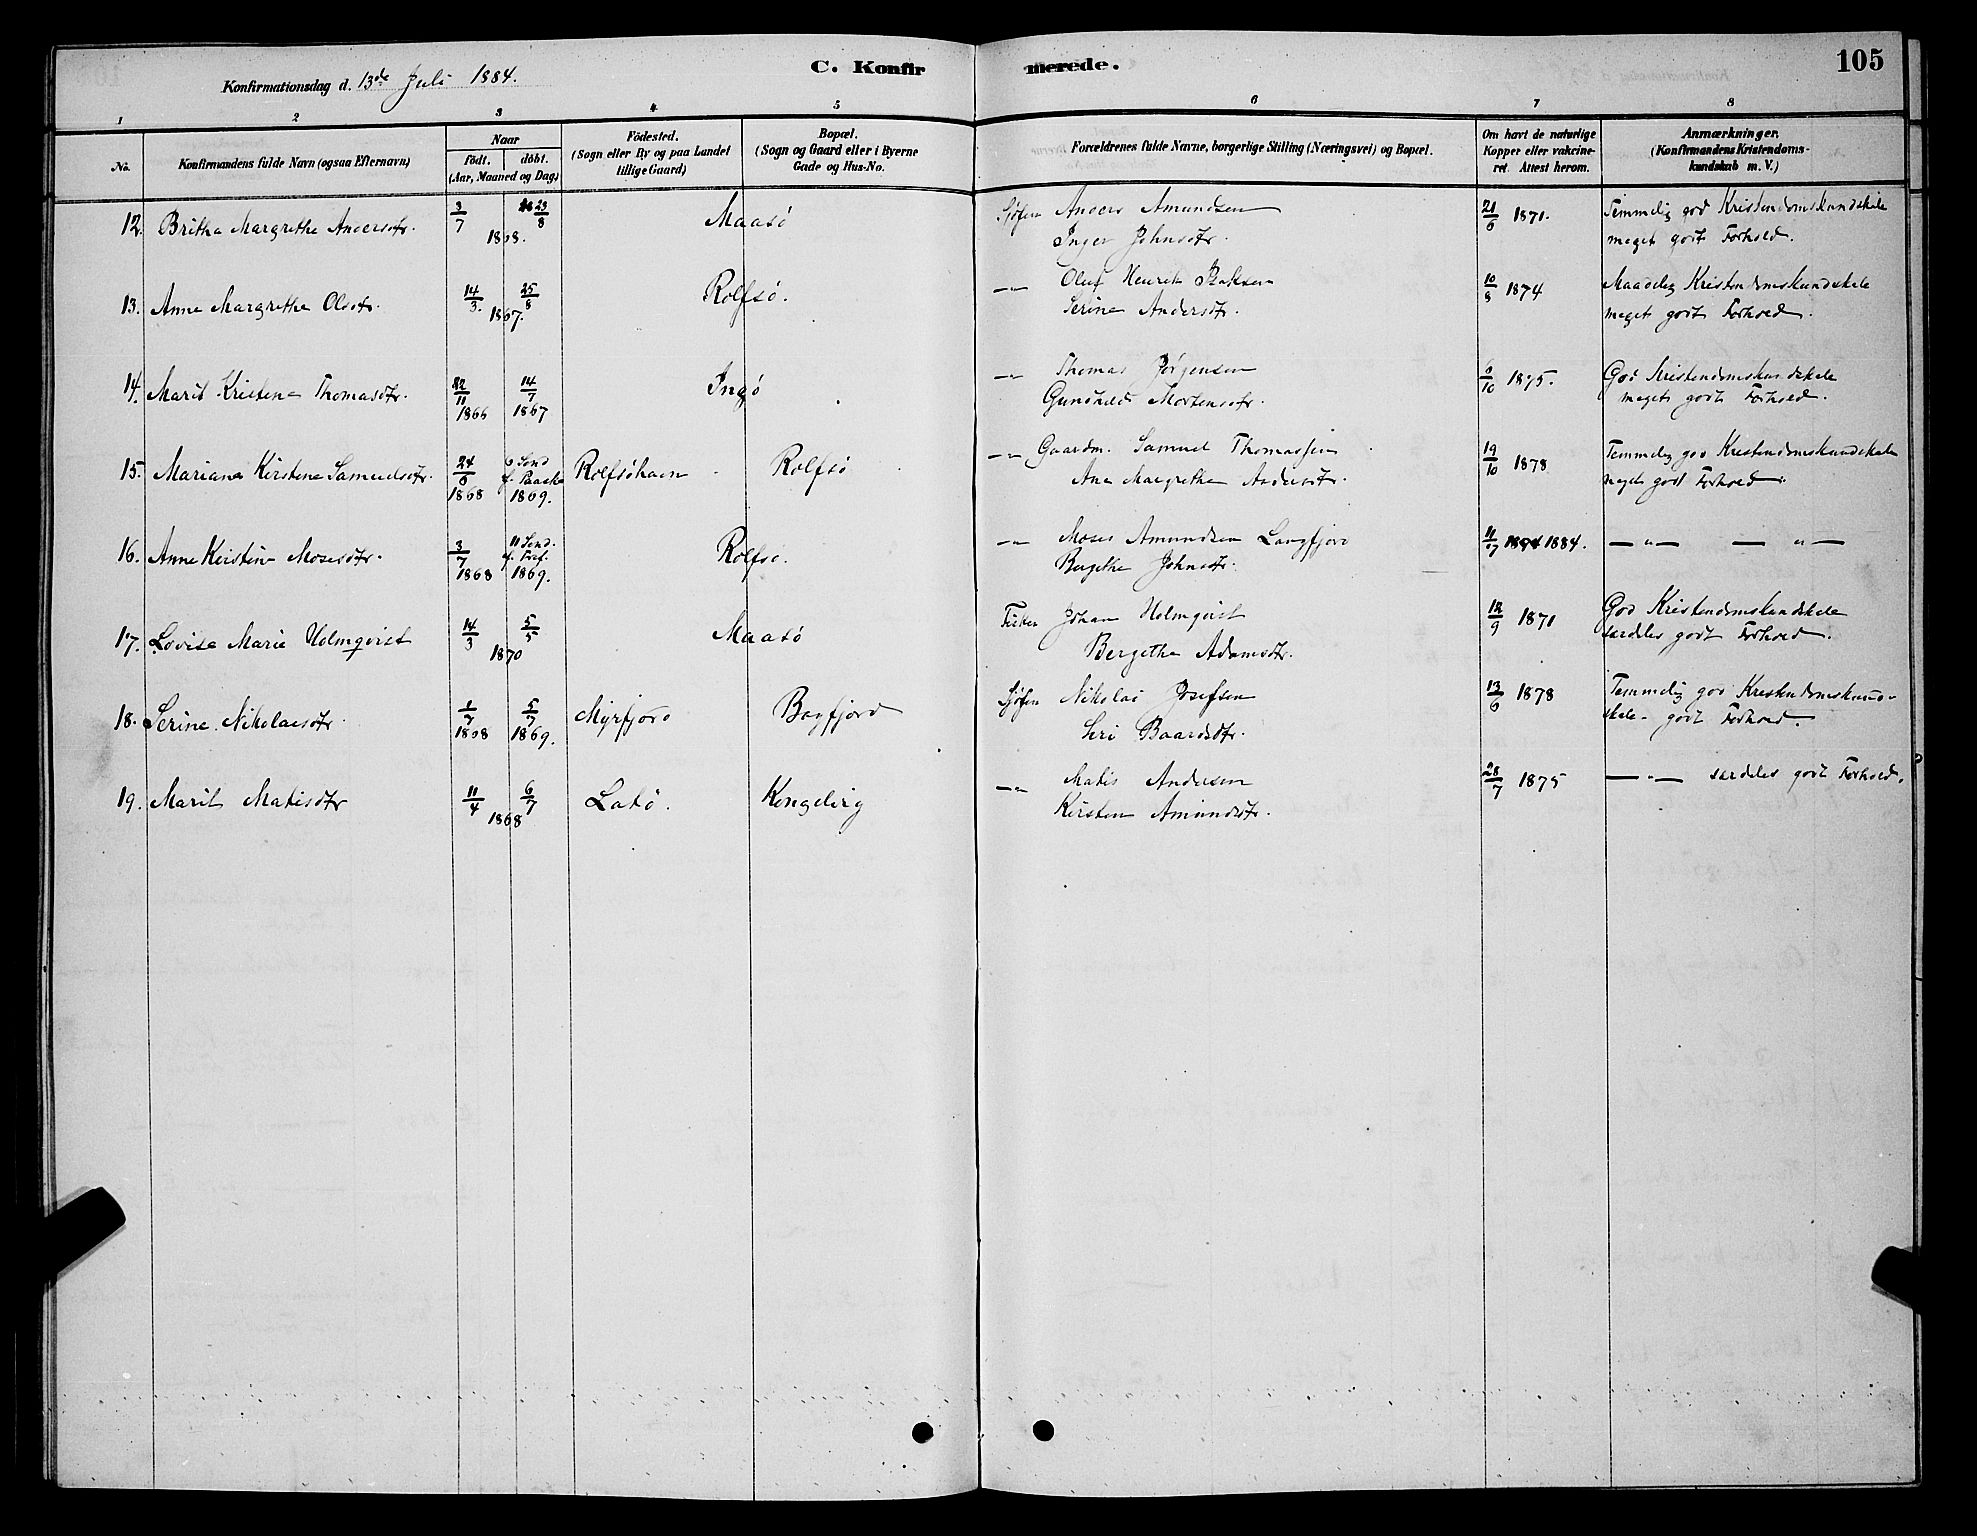 105
Konfirmationsdag d. 13de Juli 1884.
C. Konfirmerede.
1 2 3 4 5 6 7 8
No.
Konfirmandens fulde Navn (ogsaa Efternavn)
Naar
födt. döbt.
(Aar, Maaned og Dag)
Födested.
(Sogn eller By og paa Landet
tillige Gaard)
Bopæl.
(Sogn og Gaard eller i Byerne
Gade og Hus-No.
Forældrenes fulde Navne, borgerlige Stilling (Næringsvei) og Bopæl.
Om havt de naturlige
Kopper eller vakcine-
ret. Attest herom.
Anmærkninger.
(Konfirmandens Kristendoms-
kundskab m. V.)
12. Britha Margrethe Andersdtr. 3/7 23/8 1868. Maasö Sjöfin Anders Amundsen 21/6 1871. Temmelig god Kristendomskundskab
Inger Johnsdtr. meget godt Forhold.
13. Anne Margrethe Olsdtr. 14/3. 25/8 1867. Rolfsö. —"— Oluf Henrik 10/8 1874 Maadelig Kristendomskundskab
Serine Andersdtr. meget godt Forhold.
14. Marit Kristene Thomasdtr. 22/11 1866 14/7 1867 Ingö —"— Thomas Jörgensen 6/10 1875. God Kristendomskundskab
Gunhild Mortensdtr. meget godt Forhold.
15. Mariane Kirstine Samuelsdtr. 24/6 1868 6 Sönd f. Paaske 1869. Rolfsöhavn Rolfsö —"— Gaardm. Samuel Thomassen 19/10 1878 Temmelig god Kristendomskundskab
Ane Margrethe Andersdtr. meget godt Forhold.
16. Anne Kirstine Mosesdtr. 3/7 1868 11 Sönd. f. Tref. 1869. Rolfsö. —"— Moses Amundsen Langfjord 11/7 1884. —"— — "—
Bergithe Johnsdtr.
17. Lovise Marie Holmqvist 14/3 5/5 1870 Maasö Fisker Johan Holmqvist 12/9 1871 God Kristendomskundskab
Bergethe Adamsdtr. særdeles godt Forhold.
18. Serine Nikolaisdtr 1/7 1868 5/7 1869. Myrfjord Bagfjord Sjöfin Nikolai Josefsen 13/6 1878 Temmelig god Kristendomskund-
Siri Baardsdtr. skab - godt Forhold.
19. Marit Matisdtr 11/4 6/7 1868 Latö. Kongelig —"— Matis Andersen 28/7 1875 —"— særdeles godt Forhold.
Kirsten Amundsdtr.